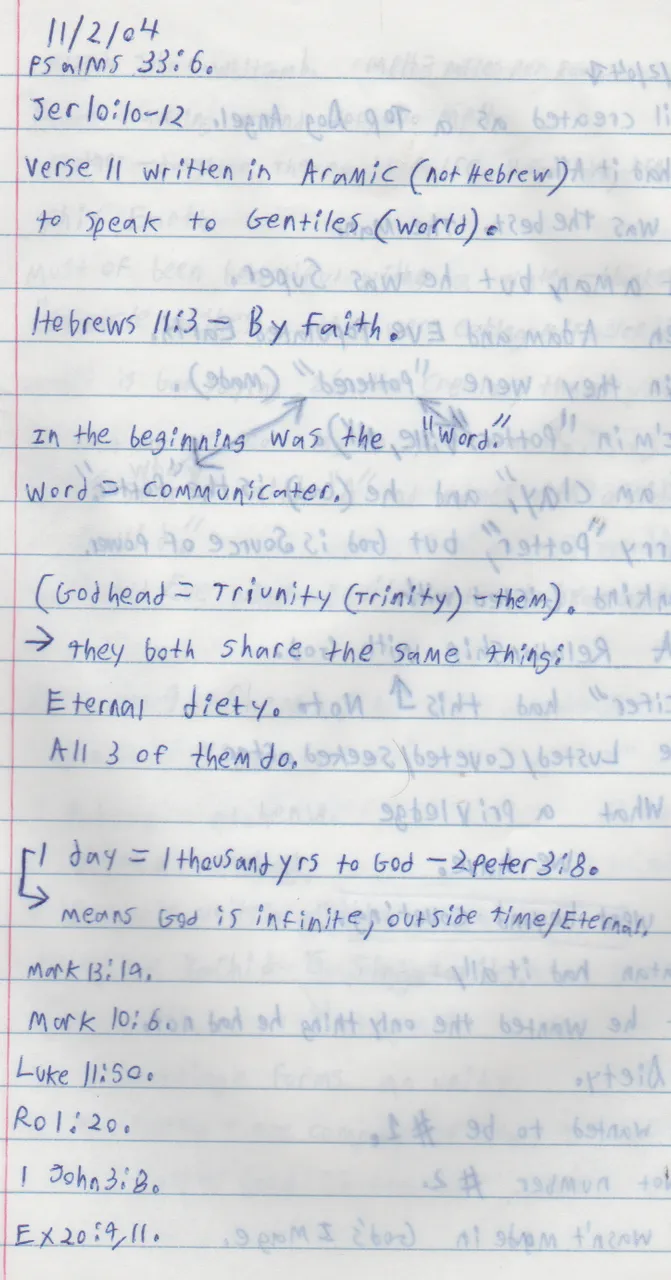 11/2/04
Psalms 33:6.
Jer 10:10-12
Verse 11 written in Aramic (not Hebrew)
to speak to Gentiles (world).
Hebrews 11:3 - By Faith.
In the beginning was the "Word."
Word = Communicater.
(Godhead = Triunity (Trinity) - them).
→ they both share the same thing:
Eternal diety.
All 3 of them do.
1 day = 1 thousand yrs to God - 2 Peter 3:8.
means God is infinite, outside time/Eternal.
Mark 13:19.
Mark 10:6.
Luke 11:50.
Ro 1:20.
1 John 3:8.
Ex 20:9,11.